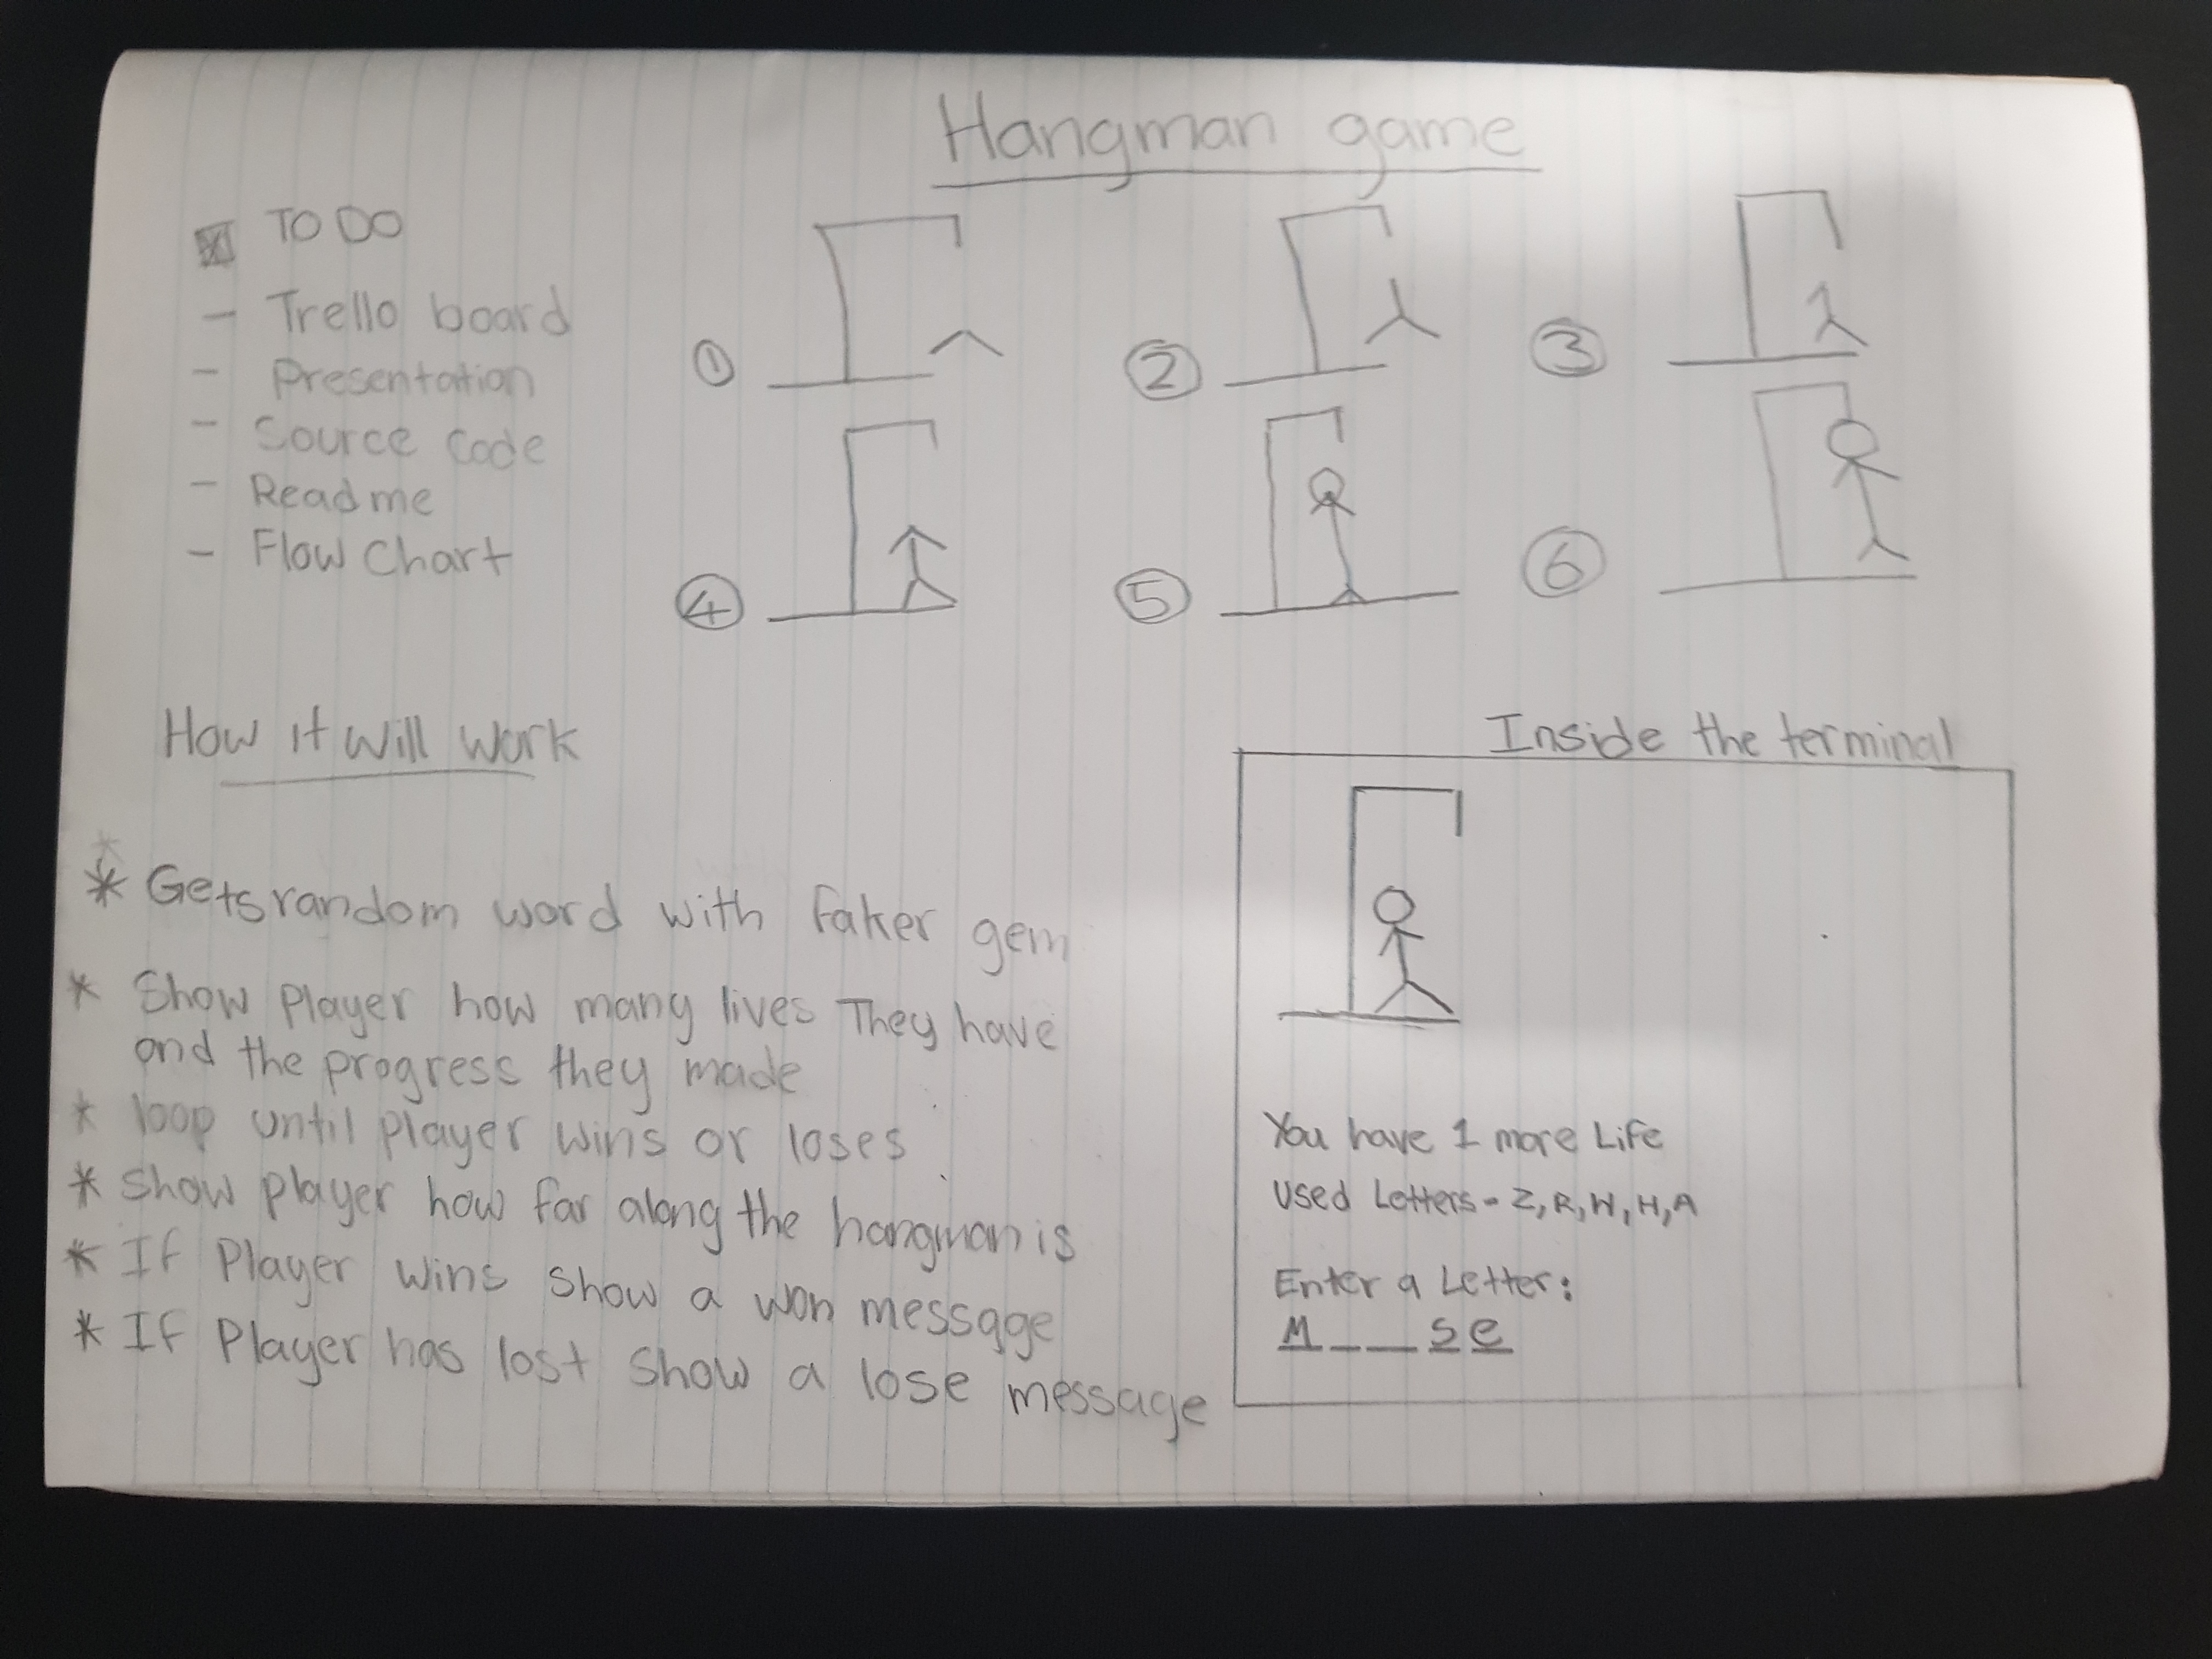 Hangman game
TO DO
- Trello board
- Presentation
- Source Code
- Readme
- Flow Chart
1
2
3
4
5
6
How it will work
* Gets random word with faker gem
* Show Player how many lives They have
and the progress they made
* loop until player wins or loses
* Show player how far along the hangman is
* If Player wins show a won message
* If Player has lost show a lose message
Inside the terminal
You have 1 more Life
used Letters - Z, R, W, H, A
Enter a Letter:
M _ _ s e